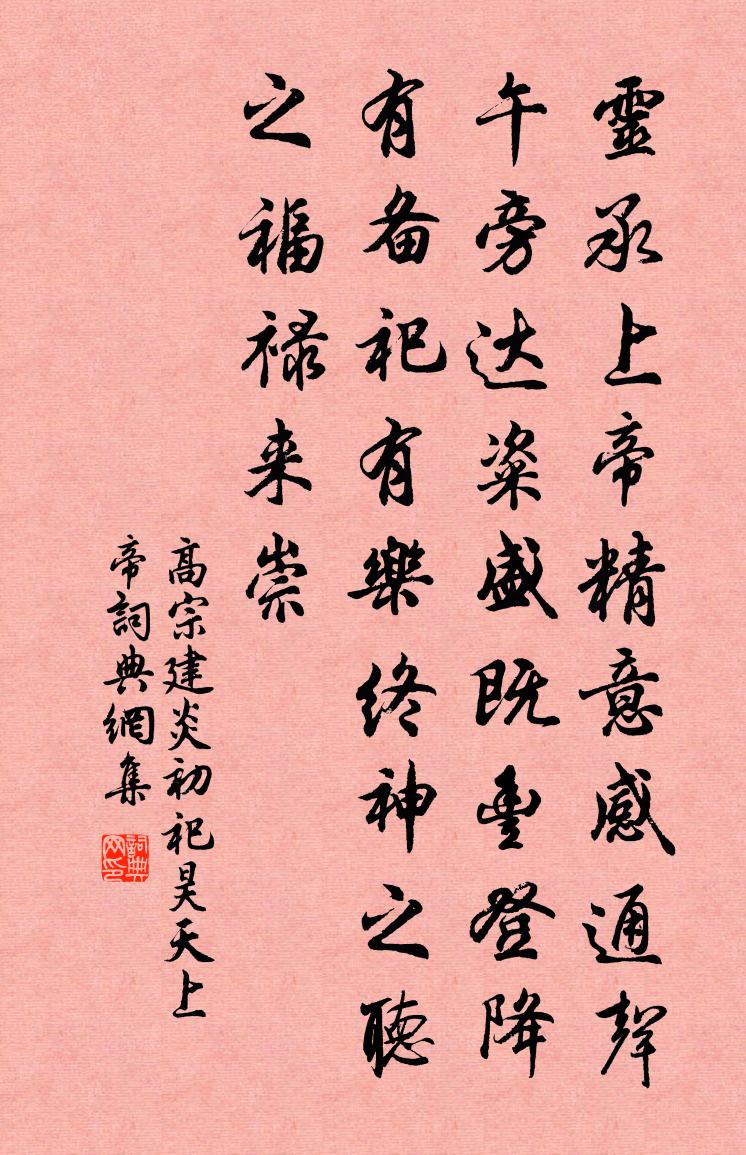 靈承上帝精意感通聲
午旁达粢盛既豊登降
有备祀有樂終神之聽
之福禄来崇
高宗建炎初祀昊天上
帝詞典網集
詞典网印